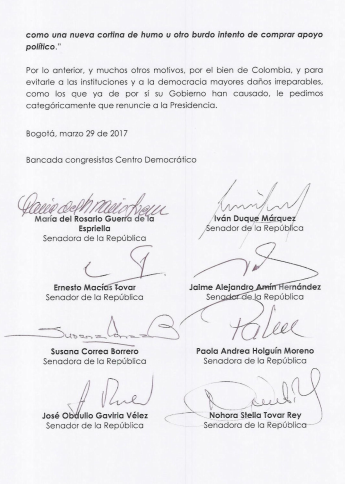 como una nueva cortina de humo u otro burdo intento de comprar apoyo
político."
Por lo anterior, y muchos otros motivos, por el bien de Colombia, y para
evitarle a las instituciones y a la democracia mayores daños irreparables,
como los que ya de por sí su Gobierno han causado, le pedimos
categóricamente que renuncie a la Presidencia.
Bogotá, marzo 29 de 2017
Bancada congresistas Centro Democrático
María del Rosario Guerra de la
Espriella
Senadora de la República
Iván Duque Márquez
Senador de la República
Ernesto Macías Tovar
Senador de la República
Jaime Alejandro Amín Hernández
Senador de la República
Susana Correa Borrero
Senadora de la República
Paola Andrea Holguín Moreno
Senadora de la República
José Obdulio Gaviria Vélez
Senador de la República
Nohora Stella Tovar Rey
Senadora de la República